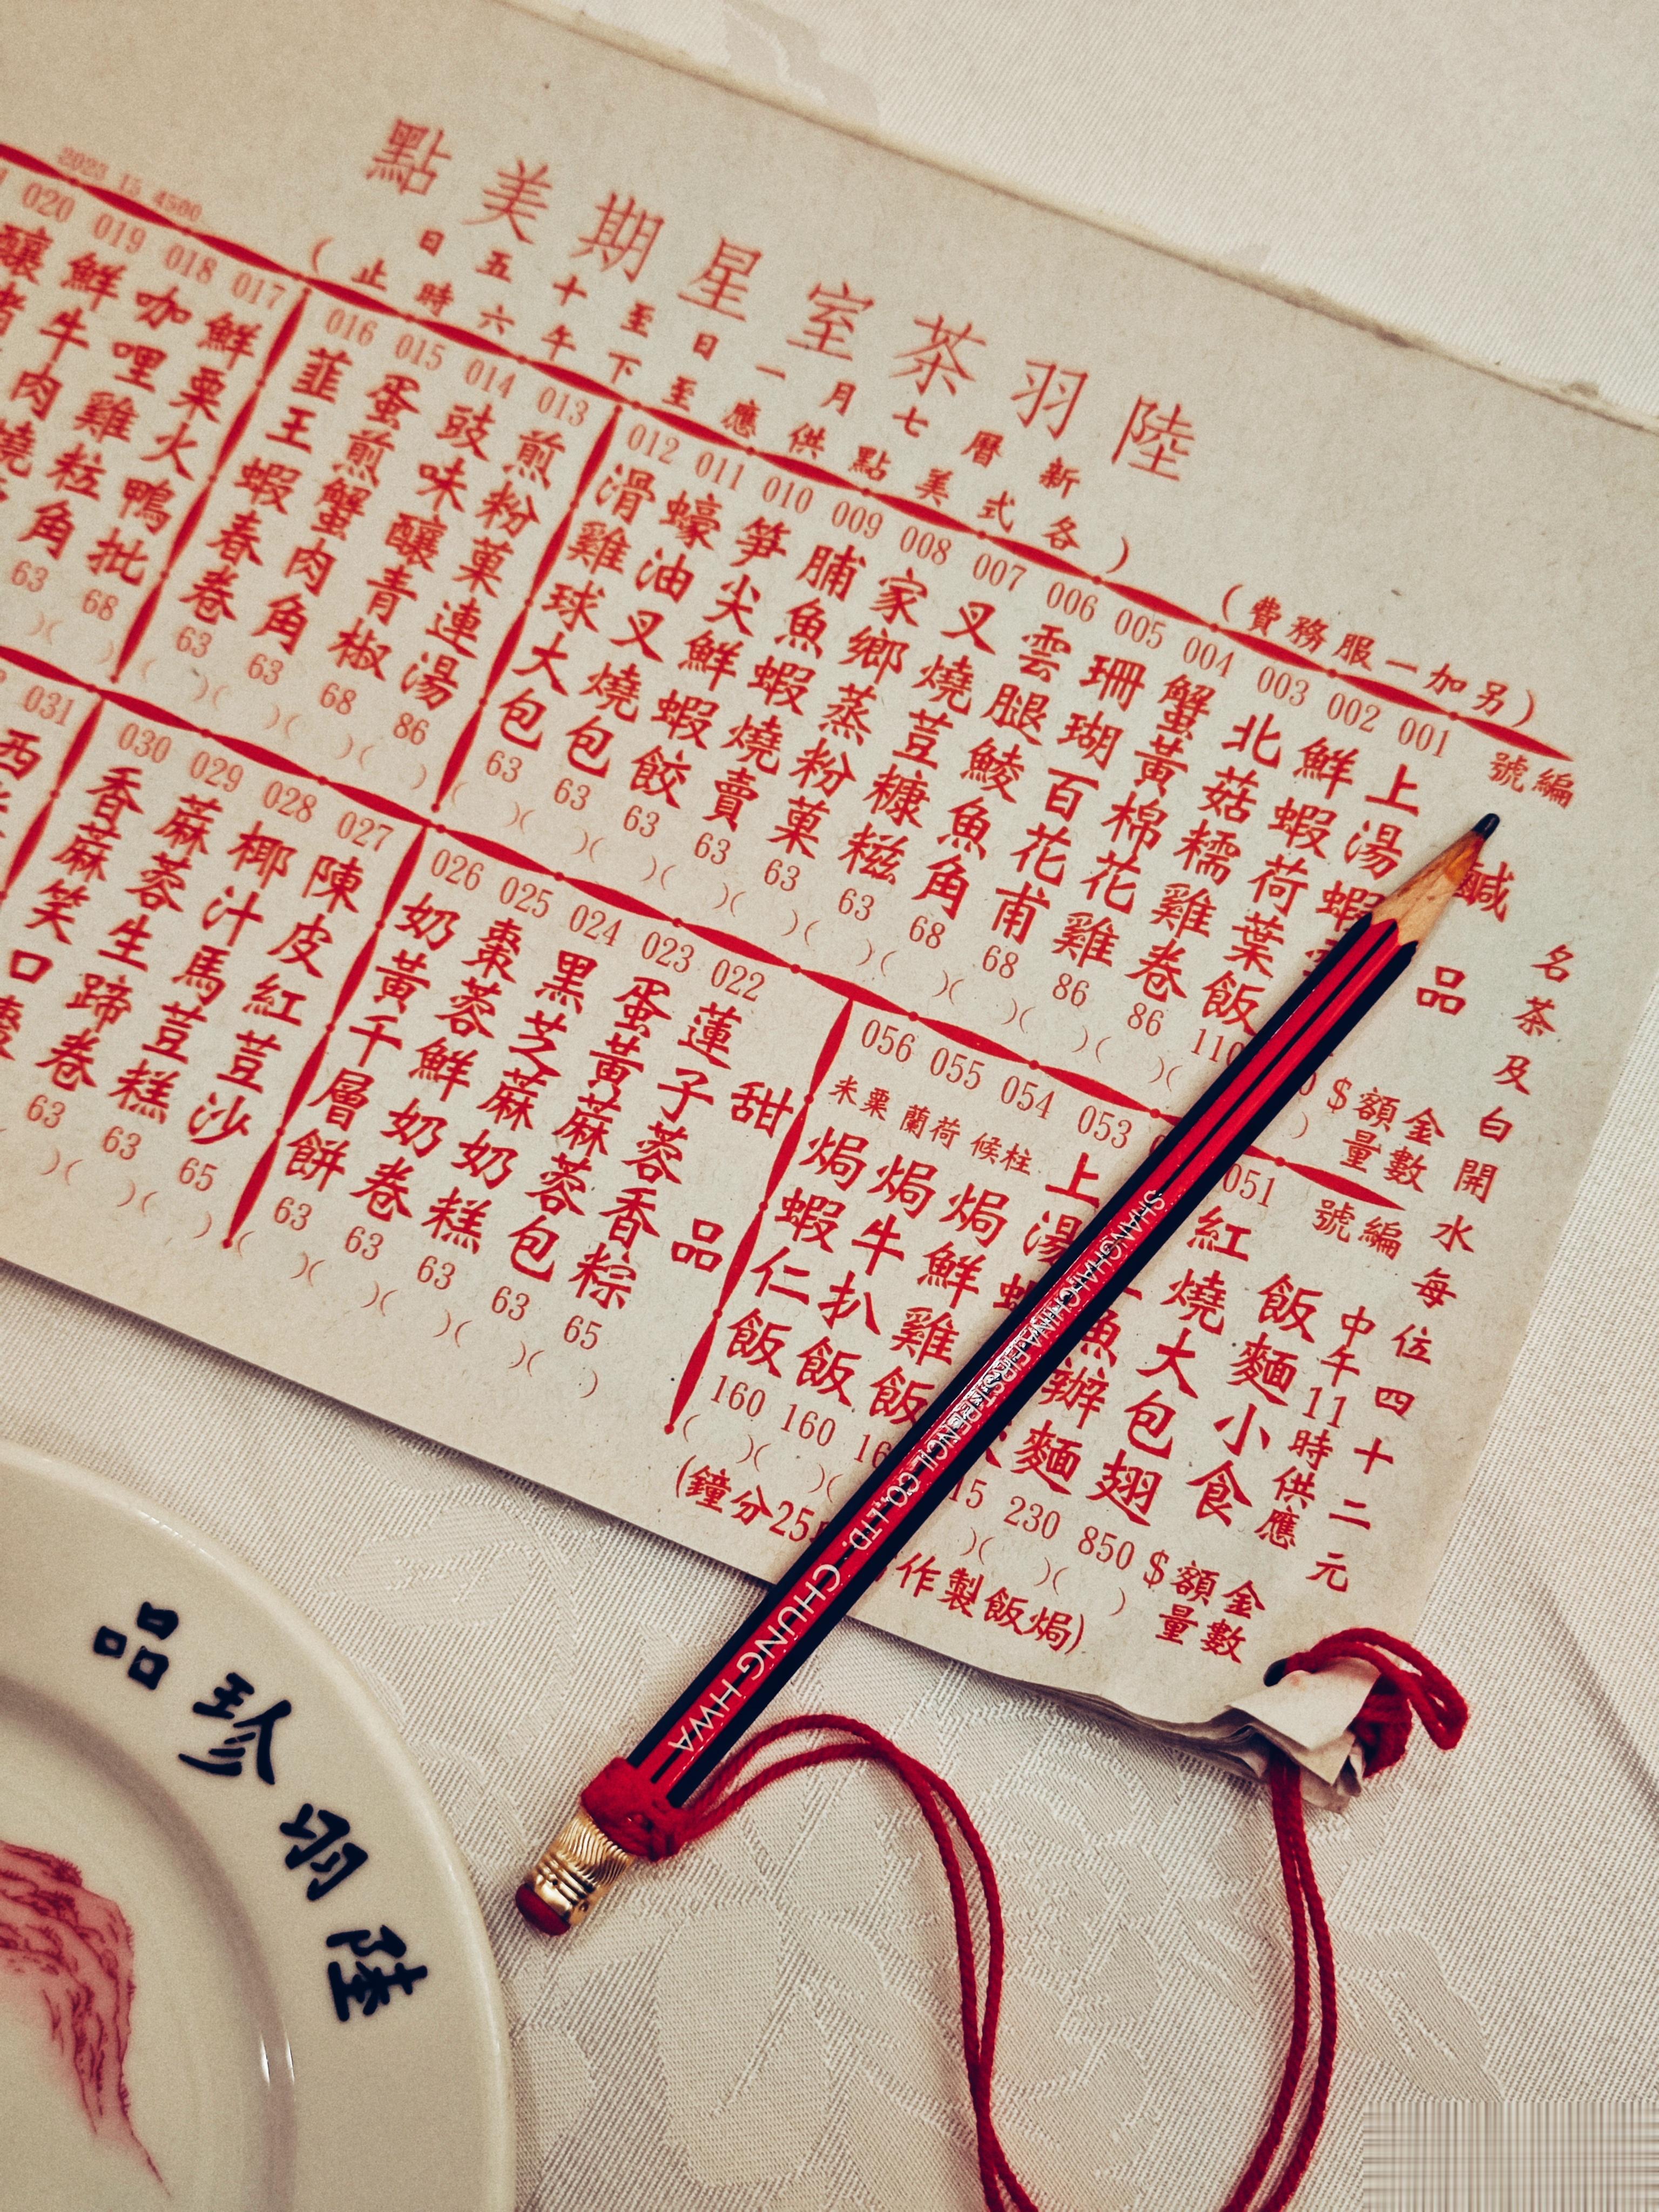 陸羽茶室星期美點
新曆七月一日至十五日
(各式美點供應至下午六時止)
2023 15 4500
(另加一服務費)
名茶及白開水每位四十二元
編號
鹹品
金額$
數量
001 上湯蝦
002 鮮蝦荷葉飯 110
003 北菇糯雞卷 86
004 蟹黃棉花雞 86
005 珊瑚百花甫 68
006 雲腿鯪魚角 68
007 叉燒荳糠糍 63
008 家鄉蒸粉菓 63
009 脯魚蝦燒賣 63
010 筍尖鮮蝦餃 63
011 蠔油叉燒包 63
012 滑雞球大包 63
013 煎粉菓連湯 86
014 豉味釀青椒 68
015 蛋煎蟹肉角 63
016 韮王蝦春卷 63
017 鮮栗火鴨批 68
018 咖哩雞粒角 63
019 鮮牛肉燒
020 釀
編號
飯麵小食
中午11時供應
金額$
數量
051 紅燒大包翅 850
魚辦麵 230
053 上湯 15
054 柱候焗鮮雞飯 16
055 荷蘭焗牛扒飯 160
056 粟米焗蝦仁飯 160
(焗飯製作 25分鐘)
甜品
022 蓮子蓉香粽 65
023 蛋黃麻蓉包 63
024 黑芝麻奶糕 63
025 棗蓉鮮奶卷 63
026 奶黃千層餅 63
027 陳皮紅荳沙 65
028 椰汁馬荳糕 63
029 麻蓉生蹄卷 63
030 香麻笑口棗
031 西
SHANGHAI CHINA FIRST PENCIL CO.,LTD. CHUNG HWA
陸羽珍品